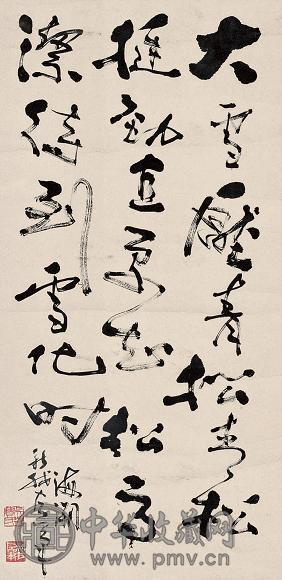 大雪壓青松青松
挺勁直要知松高
潔待到雪化时
中华收藏网
www.pmv.cn